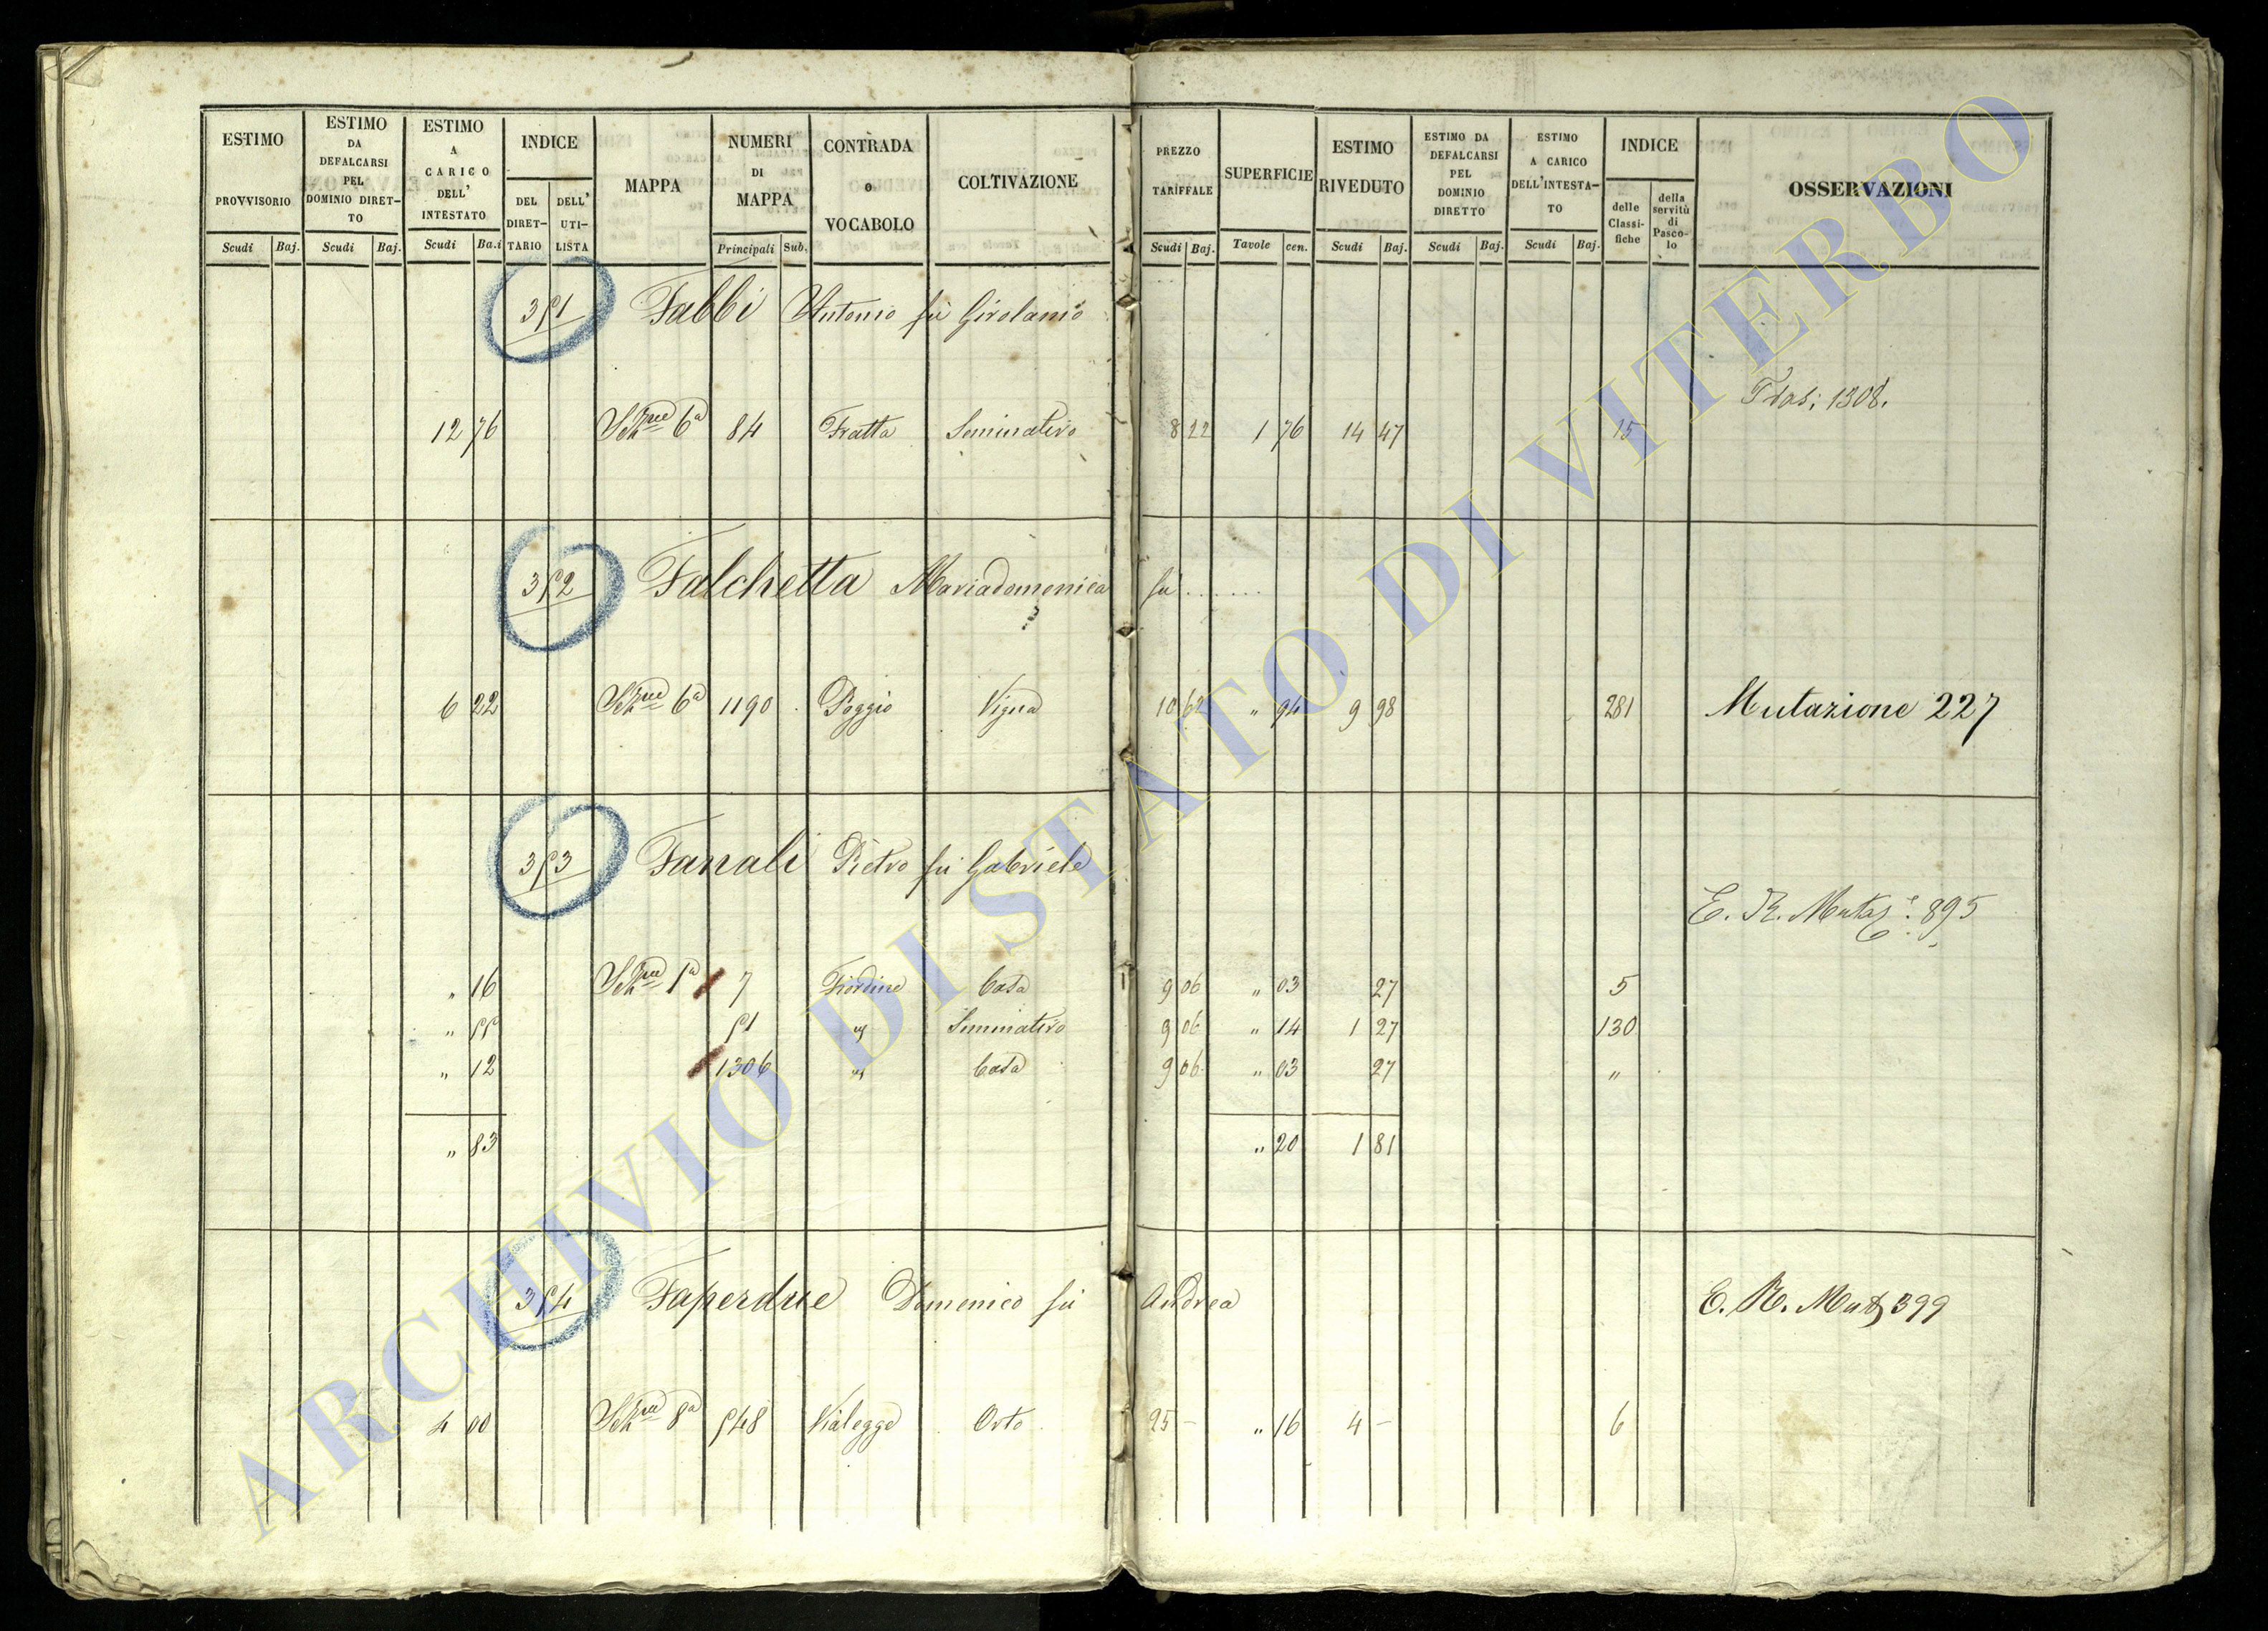 ESTIMO PROVVISORIO Scudi Baj.
ESTIMO DA DEFALCARSI PEL DOMINIO DIRETTO Scudi Baj.
ESTIMO A CARICO DELL' INTESTATO Scudi Ba.i
INDICE DEL DIRETTARIO DELL' UTILISTA
MAPPA
NUMERI DI MAPPA Principali Sub.
CONTRADA o VOCABOLO
COLTIVAZIONE
PREZZO TARIFFALE Scudi Baj.
SUPERFICIE Tavole cen.
ESTIMO RIVEDUTO Scudi Baj.
ESTIMO DA DEFALCARSI PEL DOMINIO DIRETTO Scudi Baj.
ESTIMO A CARICO DELL'INTESTATO Scudi Baj.
INDICE delle Classifiche della servitù di Pascolo
OSSERVAZIONI
351 Fabbi Antonio fu Girolamo
Tras: 1308.
12 76 6a 84 Fratta Seminativo 8 22 1 76 14 47 15
352 Falchetta Mariadomenica fu ......
6 22 6a 1190 Poggio Vigna 10 62 " 94 9 98 281 Mutazione 227
353 Fanali Pietro fu Gabriele
E. R. Mutaz.e 895
" 16 5a 7 Fiordine Casa 9 06 " 03 27 5
" 55 51 " Seminativo 9 06 " 14 1 27 130
" 12 1306 " Casa 9 06 " 03 27 "
" 83 " 20 1 81
354 Faperdue Domenico fu Andrea E. R. Mutz 399
4 00 8a 548 Vialegge Orto 25 – " 16 4 – 6
ARCHIVIO DI STATO DI VITERBO